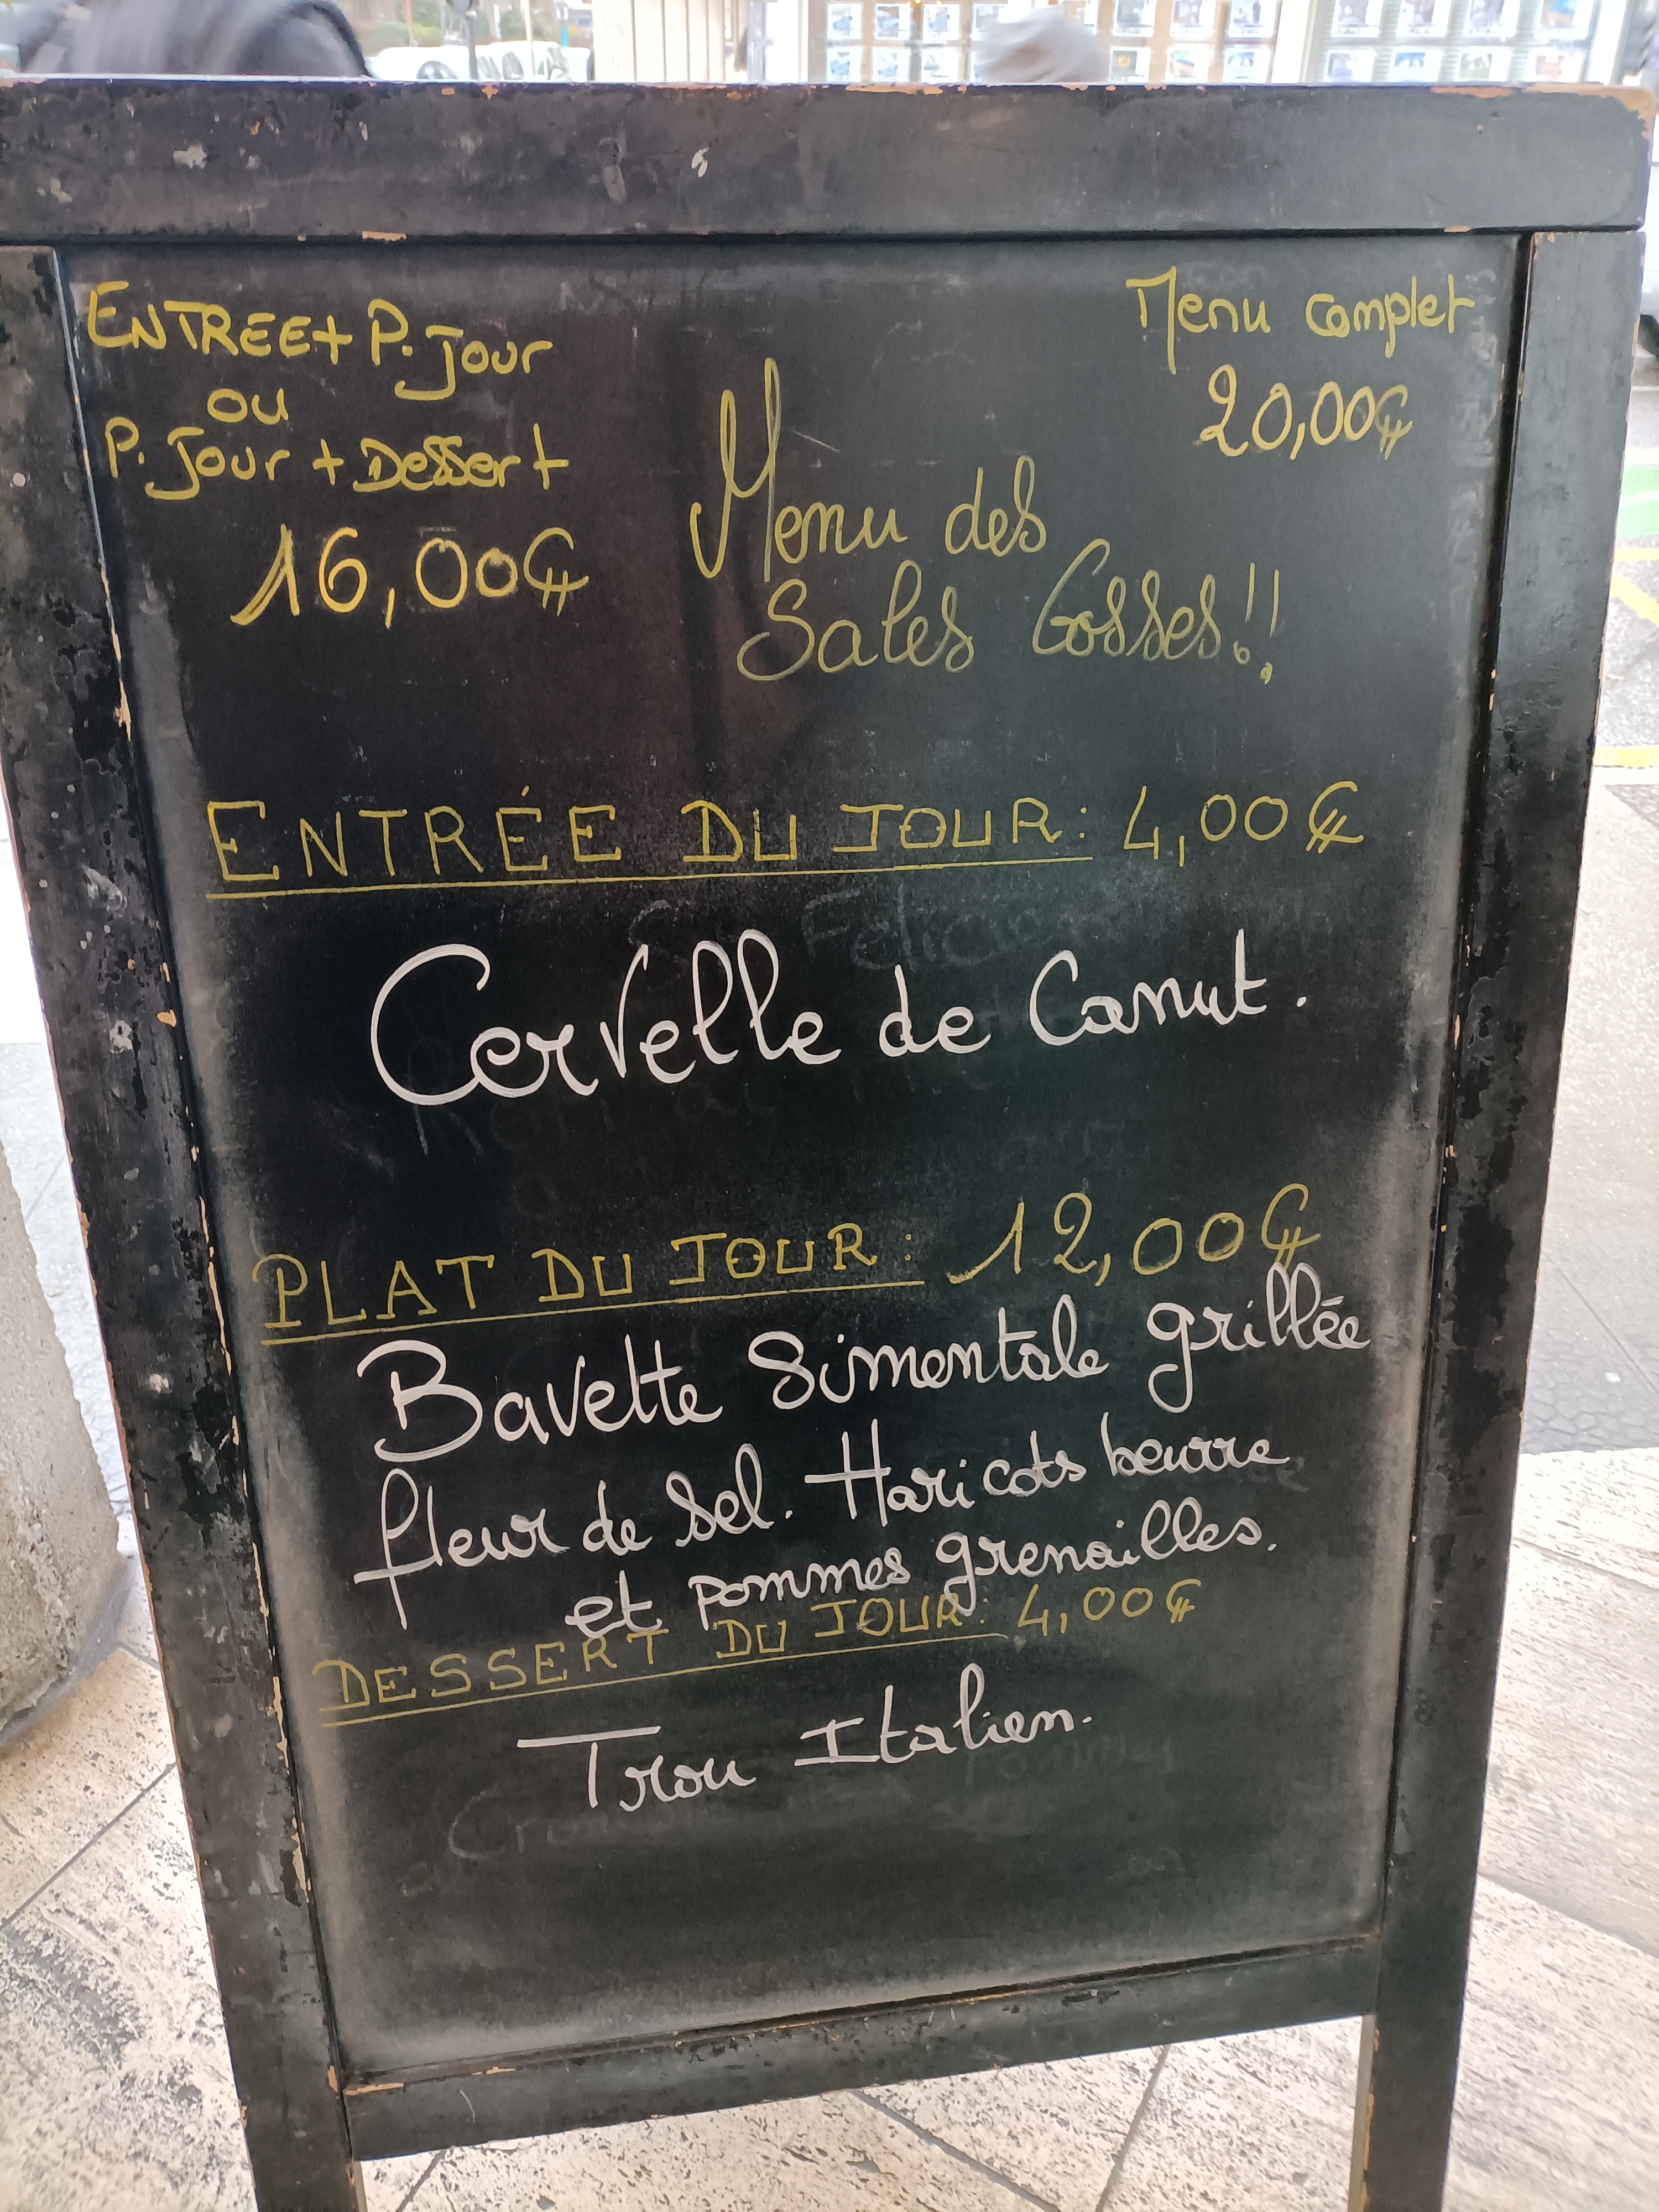 ENTREE + P. Jour
ou
P. Jour + Dessert
16,00€
Menu complet
20,00€
Menu des
Sales Gosses!!
ENTRÉE DU JOUR: 4,00€
Cervelle de Canut.
PLAT DU JOUR: 12,00€
Bavette Simentale grillée
fleur de sel. Haricots beurre
et pommes grenailles.
DESSERT DU JOUR: 4,00€
Trou Italien.